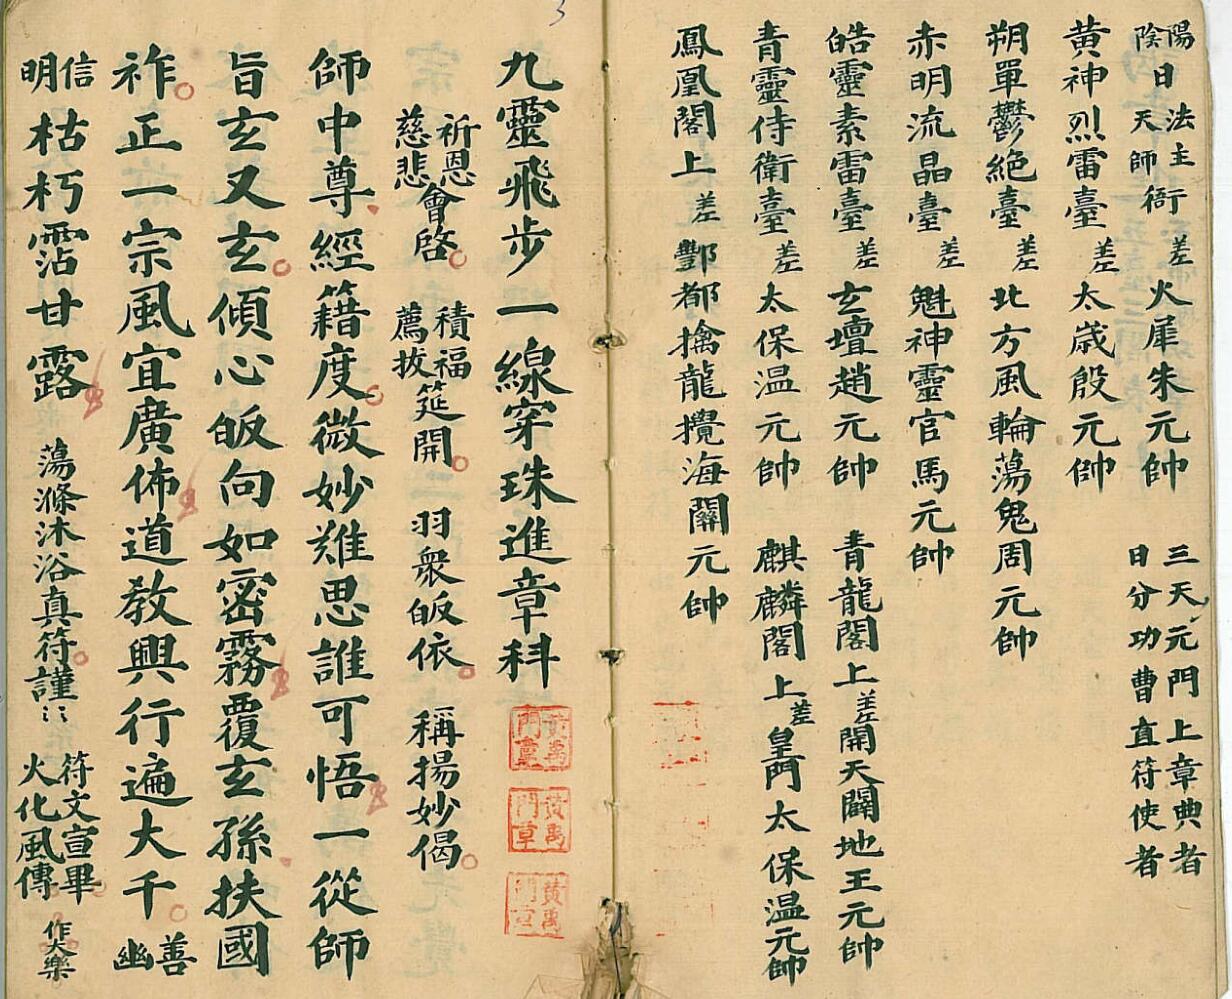 陽日法主衙差火犀朱元帥 三天元門上章典者
陰天師 日分功曹直符使者
黃神烈雷臺差太歲殷元帥
朔單鬱絕臺差北方風輪蕩鬼周元帥
赤明流晶臺差魁神靈官馬元帥
皓靈素雷臺差玄壇趙元帥 青龍閣上差開天闢地王元帥
青靈侍衛臺差太保温元帥 麒麟閣上差皇門太保温元帥
鳳凰閣上差酆都擒龍攪海關元帥
3
九靈飛步一線穿珠進章科
祈恩慈悲會啓 積福薦拔筵開 羽衆皈依 稱揚妙偈
師中尊經籍度微妙難思誰可悟一從師
旨玄又玄傾心皈向如密霧覆玄孫扶國
祚正一宗風宜廣佈道教興行遍大千 善幽
信明枯朽霑甘露 蕩滌沐浴真符謹〻 符文宣畢火化風傳 作大樂